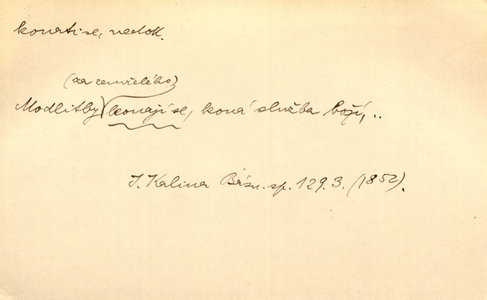 konati se, nedok.
(za zemřelého)
Modlitby konají se, koná služba boží, ..
J. Kalina Básn. sp. 129. 3. (1852).